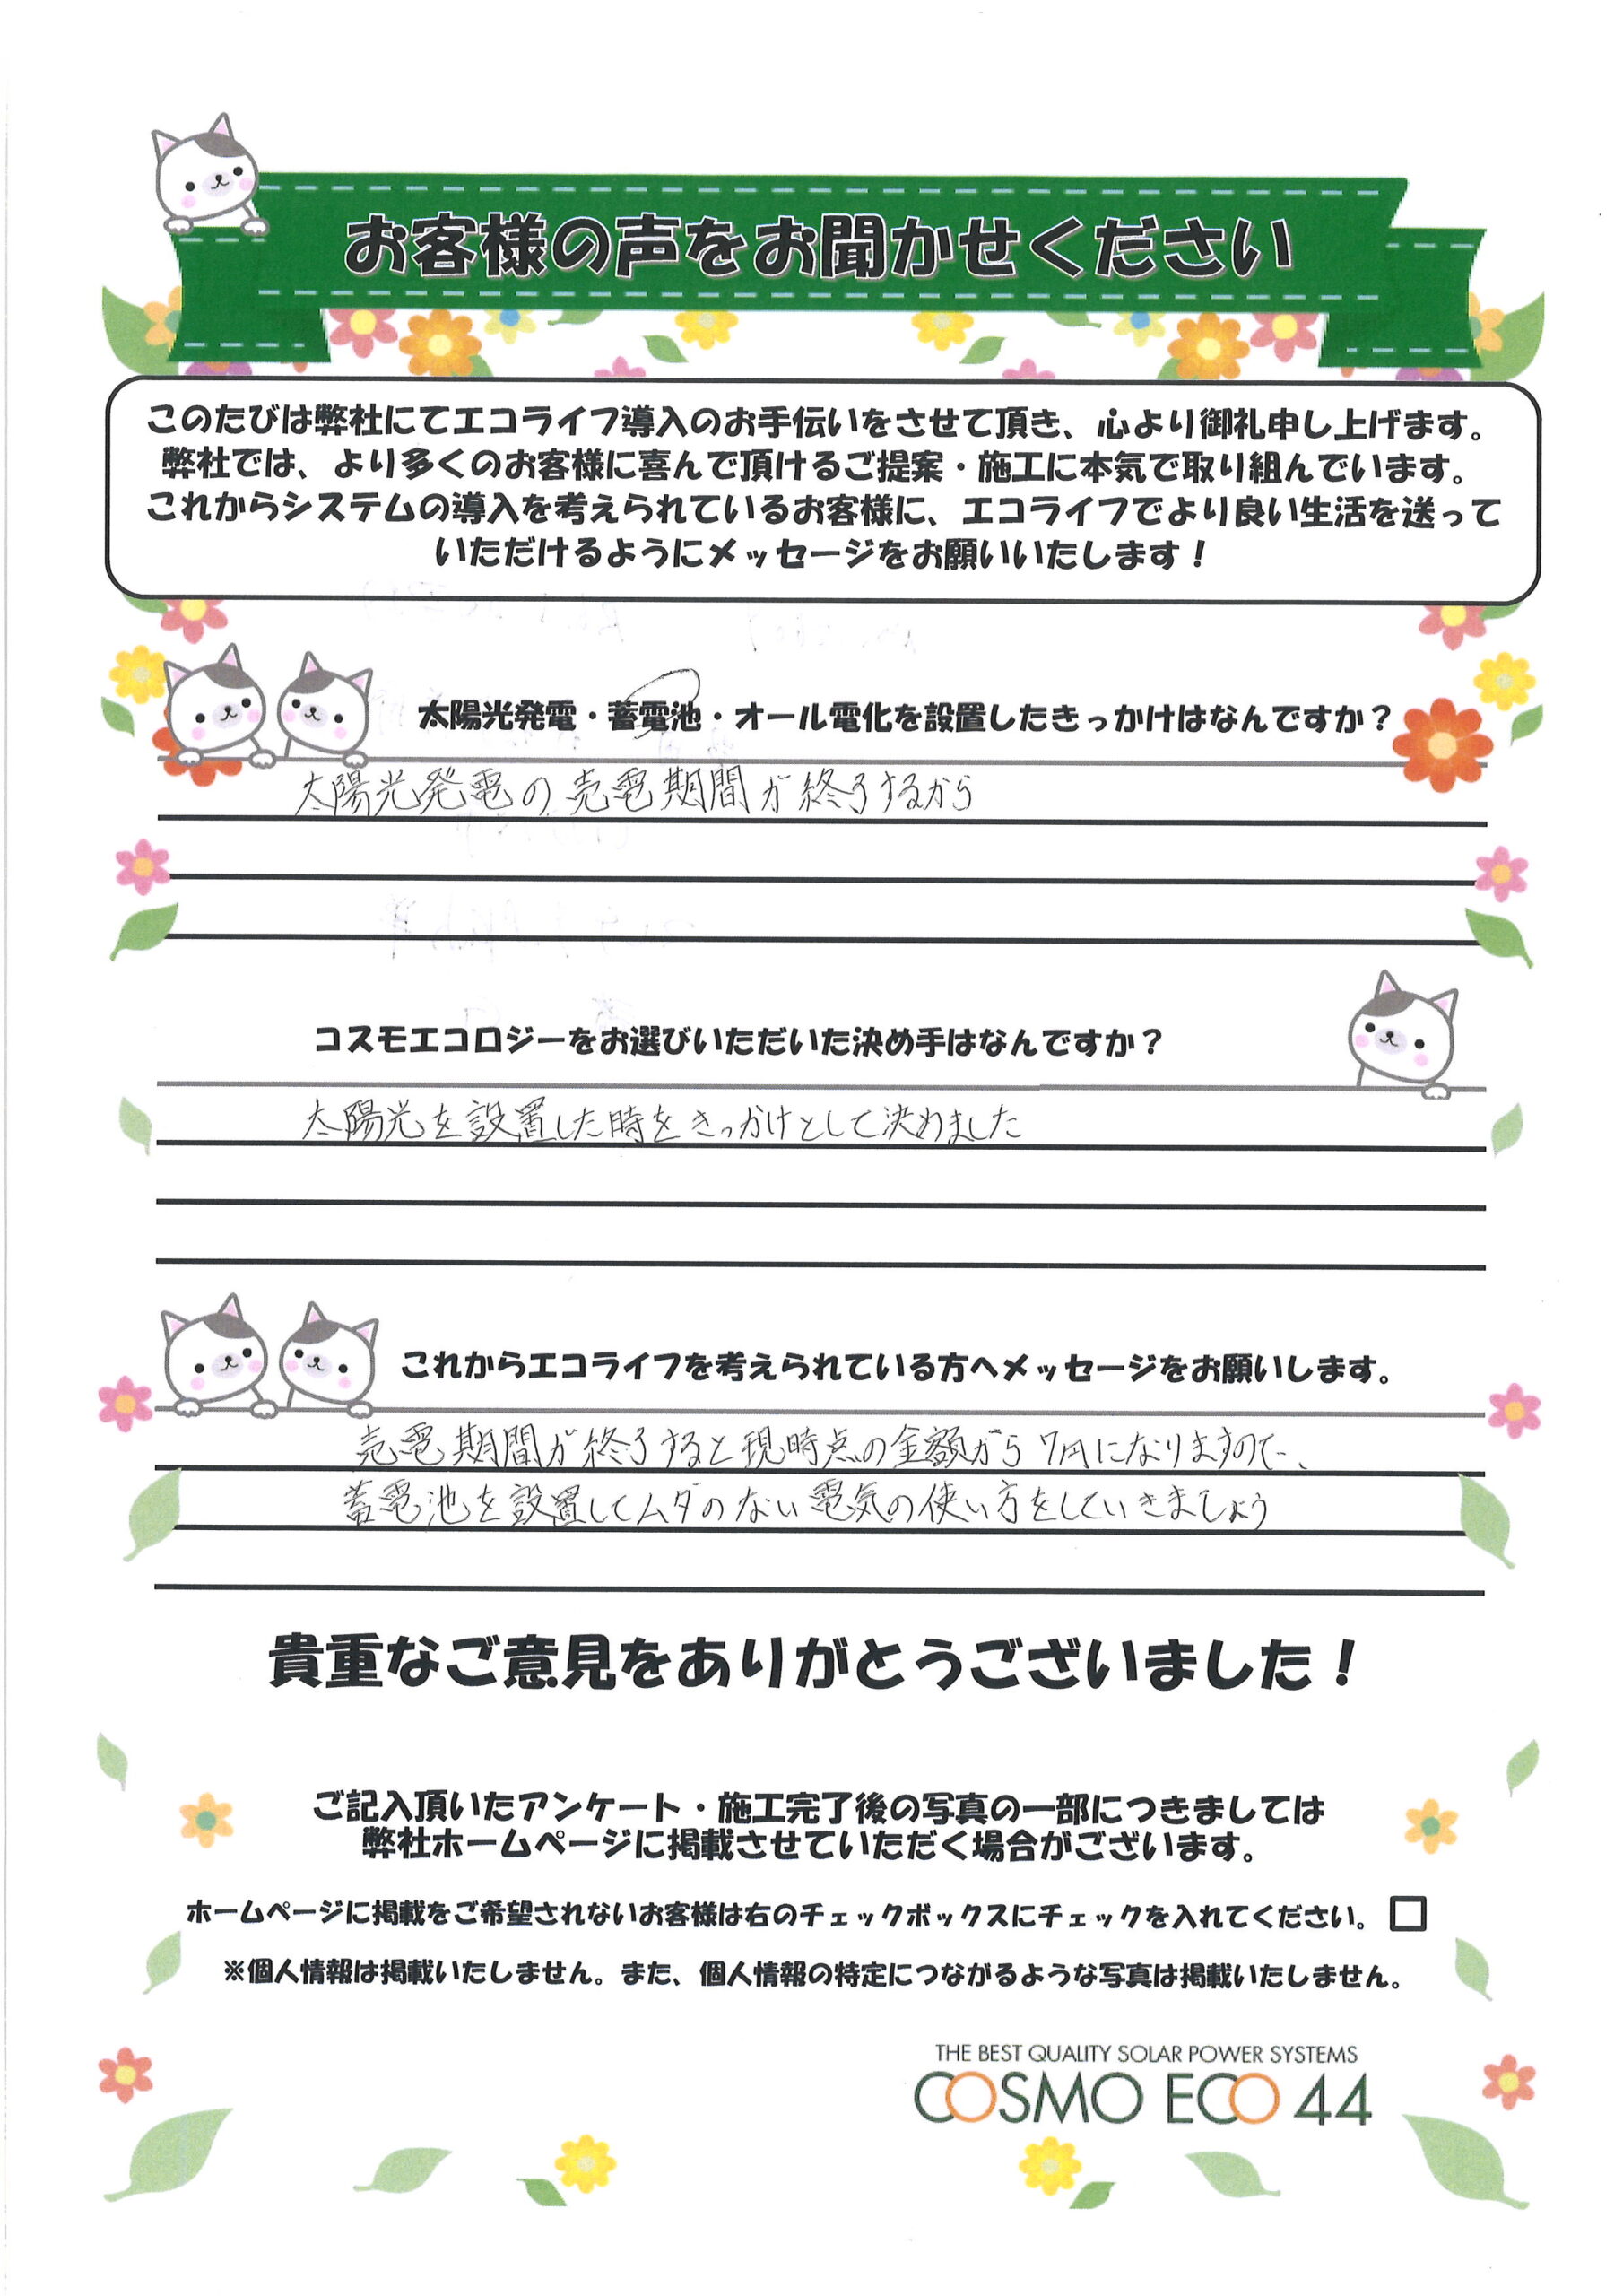 お客様の声をお聞かせください
このたびは弊社にてエコライフ導入のお手伝いをさせて頂き、心より御礼申し上げます。
弊社では、より多くのお客様に喜んで頂けるご提案・施工に本気で取り組んでいます。
これからシステムの導入を考えられているお客様に、エコライフでより良い生活を送って
いただけるようにメッセージをお願いいたします！
太陽光発電・蓄電池・オール電化を設置したきっかけはなんですか？
太陽光発電の売電期間が終了するから
コスモエコロジーをお選びいただいた決め手はなんですか？
太陽光を設置した時をきっかけとして決めました
これからエコライフを考えられている方へメッセージをお願いします。
売電期間が終了すると現時点の金額から7円になりますので、
蓄電池を設置してムダのない電気の使い方をしていきましょう
貴重なご意見をありがとうございました！
ご記入頂いたアンケート・施工完了後の写真の一部につきましては
弊社ホームページに掲載させていただく場合がございます。
ホームページに掲載をご希望されないお客様は右のチェックボックスにチェックを入れてください。
※個人情報は掲載いたしません。また、個人情報の特定につながるような写真は掲載いたしません。
THE BEST QUALITY SOLAR POWER SYSTEMS
COSMO ECO 44